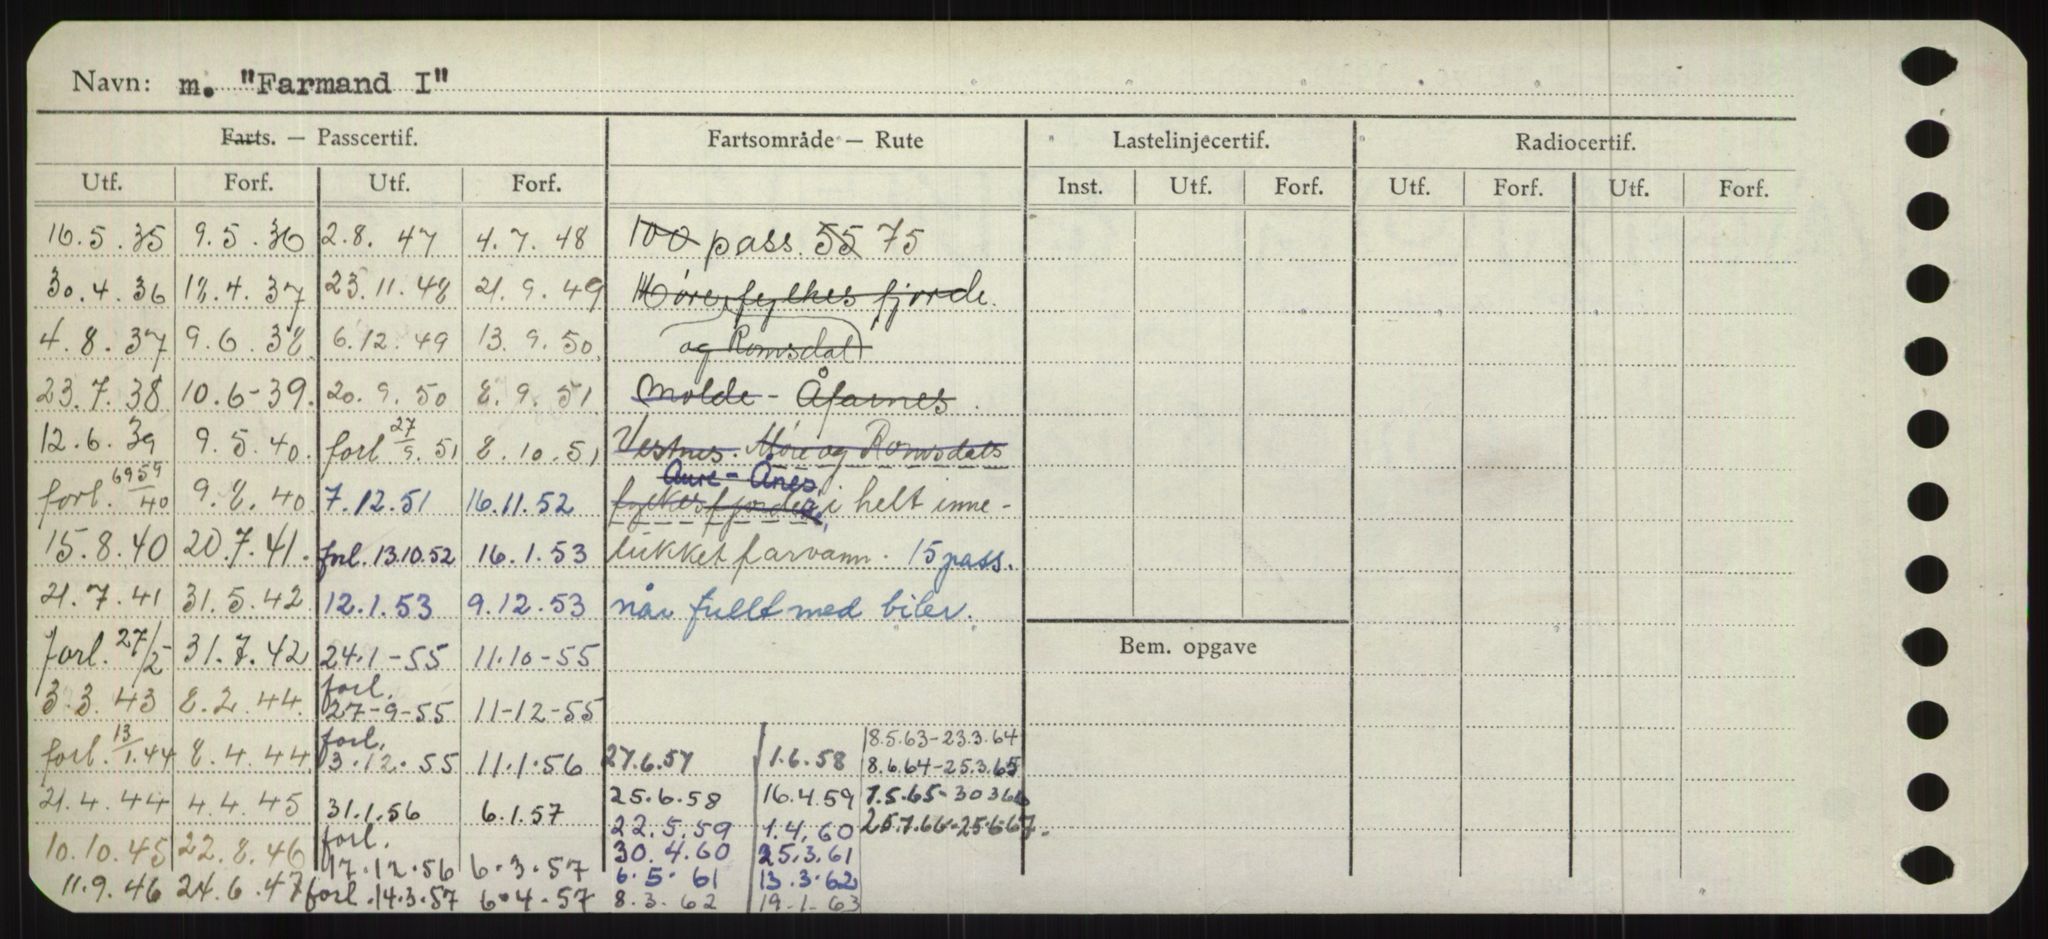 Navn: m. "Farmand I"
Farts. — Passcertif. Fartsområde — Rute Lastelinjecertif. Radiocertif.
Utf. Forf. Utf. Forf. Inst. Utf. Forf. Utf. Forf. Utf. Forf.
16.5.35 9.5.36 2.8.47 4.7.48 100 pass. 55 75
30.4.36 18.4.37 23.11.48 21.9.49 Møre fylkes fjorde.
4.8.37 9.6.38 6.12.49 13.9.50 og Romsdal
23.7.38 10.6-39. 20.9.50 8.9.51 Molde - Åfarnes.
12.6.39 9.5.40. forl 27/9.51 8.10.51 Vestnes. Møre og Romsdals
Aure - Anes
forl. 40 9.8.40 7.12.51 16.11.52 fylkes fjorder i helt inne-
15.8.40 20.7.41. forl. 13.10.52 16.1.53 lukket farvann. 15 pass.
21.7.41 31.5.42 12.1.53 9.12.53 når fullt med biler.
forl. 27/5 31.7.42 24.1-55 11.10-55 Bem. opgave
3.3.43 8.2.44. forl. 27-9-55 11-12-55
forl. 13/1.44 8.4.44 forl. 3.12.55 11.1.56 27.6.57 1.6.58 8.5.63-23.3.64
8.6.64-25.3.65
21.4.44 4.4.45 31.1.56 6.1.57 25.6.58 16.4.59 7.5.65-30366
22.5.59 1.4.60 25.7.66-25.6.67.
10.10.45 22.8.46 forl. 17.12.56 6.3.57 30.4.60 25.3.61
6.5.61 13.3.62
11.9.46 24.6.47 forl. 14.3.57 6.4.57 8.3.62 19-1-63